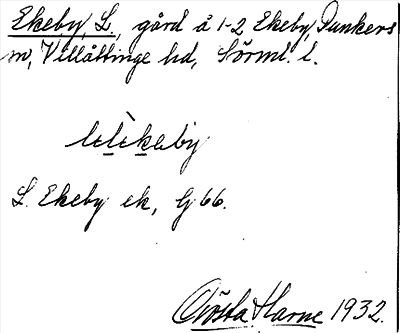 Ekeby, L., gård å 1-2 Ekeby, Dunkers
sn, Villåttinge hd, Sörml. l.
lɩlèkeby
L. Ekeby ek, G 66.
Gösta Harne 1932.